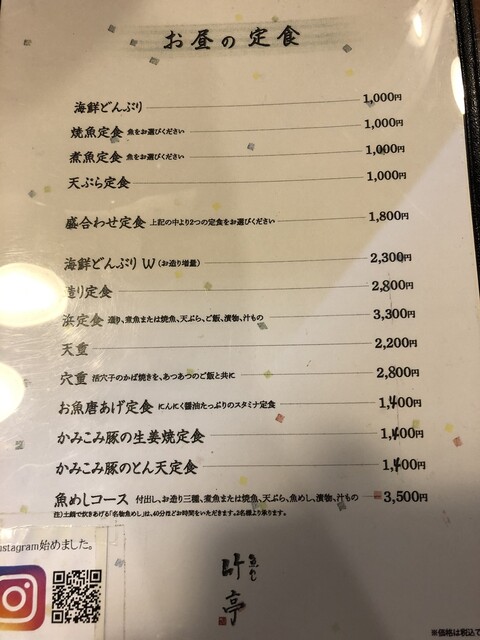 お昼の定食
海鮮どんぶり 1,000円
焼魚定食 魚をお選びください 1,000円
煮魚定食 魚をお選びください 1,000円
天ぷら定食 1,000円
盛合わせ定食 上記の中より2つの定食をお選びください 1,800円
海鮮どんぶり W(お造り増量) 2,300円
造り定食 2,800円
浜定食 造り、煮魚または焼魚、天ぷら、ご飯、漬物、汁もの 3,300円
天重 2,200円
穴重 活穴子のかば焼きを、あつあつのご飯と共に 2,800円
お魚唐あげ定食 にんにく醤油たっぷりのスタミナ定食 1,400円
かみこみ豚の生姜焼定食 1,400円
かみこみ豚のとん天定食 1,400円
魚めしコース 付出し、お造り三種、煮魚または焼魚、天ぷら、魚めし、漬物、汁もの 3,500円
注)土鍋で炊きあげる「名物魚めし」は、40分ほどお時間をいただきます。2名様より承ります。
nstagram始めました。
魚めし
亭
※価格は税込で